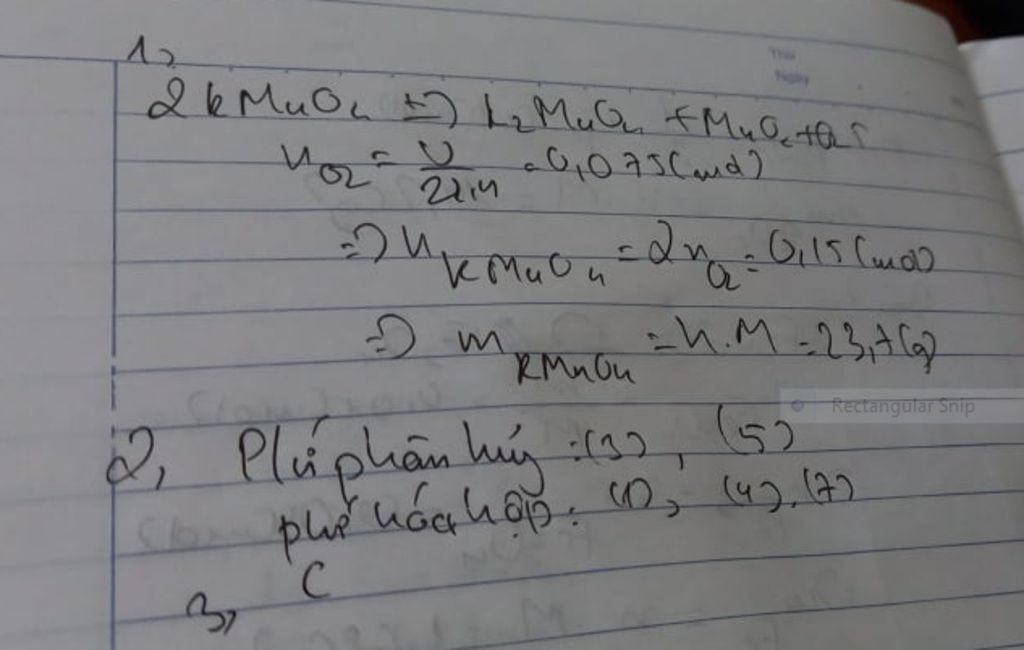 Thứ
Ngày
1,
2KMnO4 t°=> K2MnO4 + MnO2 + O2 ↑
nO2 = V/22,4 = 0,075 (mol)
=> nKMnO4 = 2nO2 = 0,15 (mol)
=> mKMnO4 = n.M = 23,7 (g)
Rectangular Snip
2, Pứ phân hủy : (3), (5)
phứ hóa hợp : (1), (4), (7)
3, C